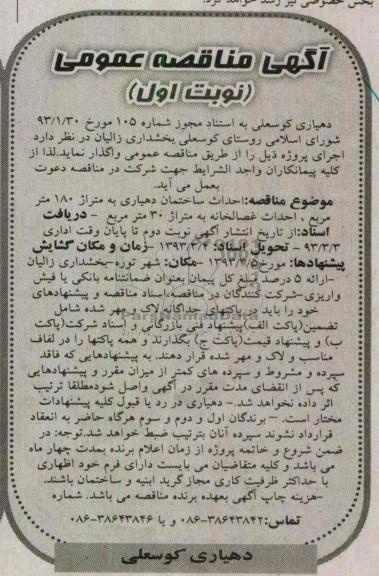 بخش خصوصی نیز رشد خواهد کرد.
آگهی مناقصه عمومی
(نوبت اول)
دهیاری کوسعلی به استناد مجوز شماره ۱۰۵ مورخ ۹۳/۱/۳۰
شورای اسلامی روستای کوسعلی بخشداری زالیان در نظر دارد
اجرای پروژه ذیل را از طریق مناقصه عمومی واگذار نماید.لذا از
کلیه پیمانکاران واجد الشرایط جهت شرکت در مناقصه دعوت
بعمل می آید.
موضوع مناقصه:احداث ساختمان دهیاری به متراژ ۱۸۰ متر
مربع ، احداث غسالخانه به متراژ ۳۰ متر مربع - دریافت
اسناد:از تاریخ انتشار آگهی نوبت دوم تا پایان وقت اداری
۹۳/۳/۳ - تحویل اسناد: ۱۳۹۳/۳/۴ -زمان و مکان گشایش
پیشنهادها: مورخ ۱۳۹۳/۳/۵ -مکان: شهر توره-بخشداری زالیان
-ارائه ۵ درصد مبلغ کل پیمان بعنوان ضمانتنامه بانکی یا فیش
واریزی-شرکت کنندگان در مناقصه،اسناد مناقصه و پیشنهادهای
خود را باید در پاکتهای جداگانه لاک و مهر شده شامل
تضمین(پاکت الف)پیشنهاد فنی بازرگانی و اسناد شرکت(پاکت
ب) و پیشنهاد قیمت(پاکت ج) بگذارند و همه پاکتها را در لفاف
مناسب و لاک و مهر شده قرار دهند. به پیشنهادهایی که فاقد
سپرده و مشروط و سپرده های کمتر از میزان مقرر و پیشنهادهایی
که پس از انقضای مدت مقرر در آگهی واصل شودمطلقا ترتیب
اثر داده نخواهد شد.- دهیاری در رد یا قبول کلیه پیشنهادات
مختار است. - برندگان اول و دوم و سوم هرگاه حاضر به انعقاد
قرارداد نشوند سپرده آنان بترتیب ضبط خواهد شد.توجه: در
ضمن شروع و خاتمه پروژه از زمان اعلام برنده بمدت چهار ماه
می باشد و کلیه متقاضیان می بایست دارای فرم خود اظهاری
با حداکثر ظرفیت کاری مجاز گرید ابنیه و ساختمان باشند.
-هزینه چاپ آگهی بعهده برنده مناقصه می باشد. شماره
تماس:۳۸۶۴۳۸۴۲-۰۸۶ و یا ۳۸۶۴۳۸۴۶-۰۸۶
دهیاری کوسعلی